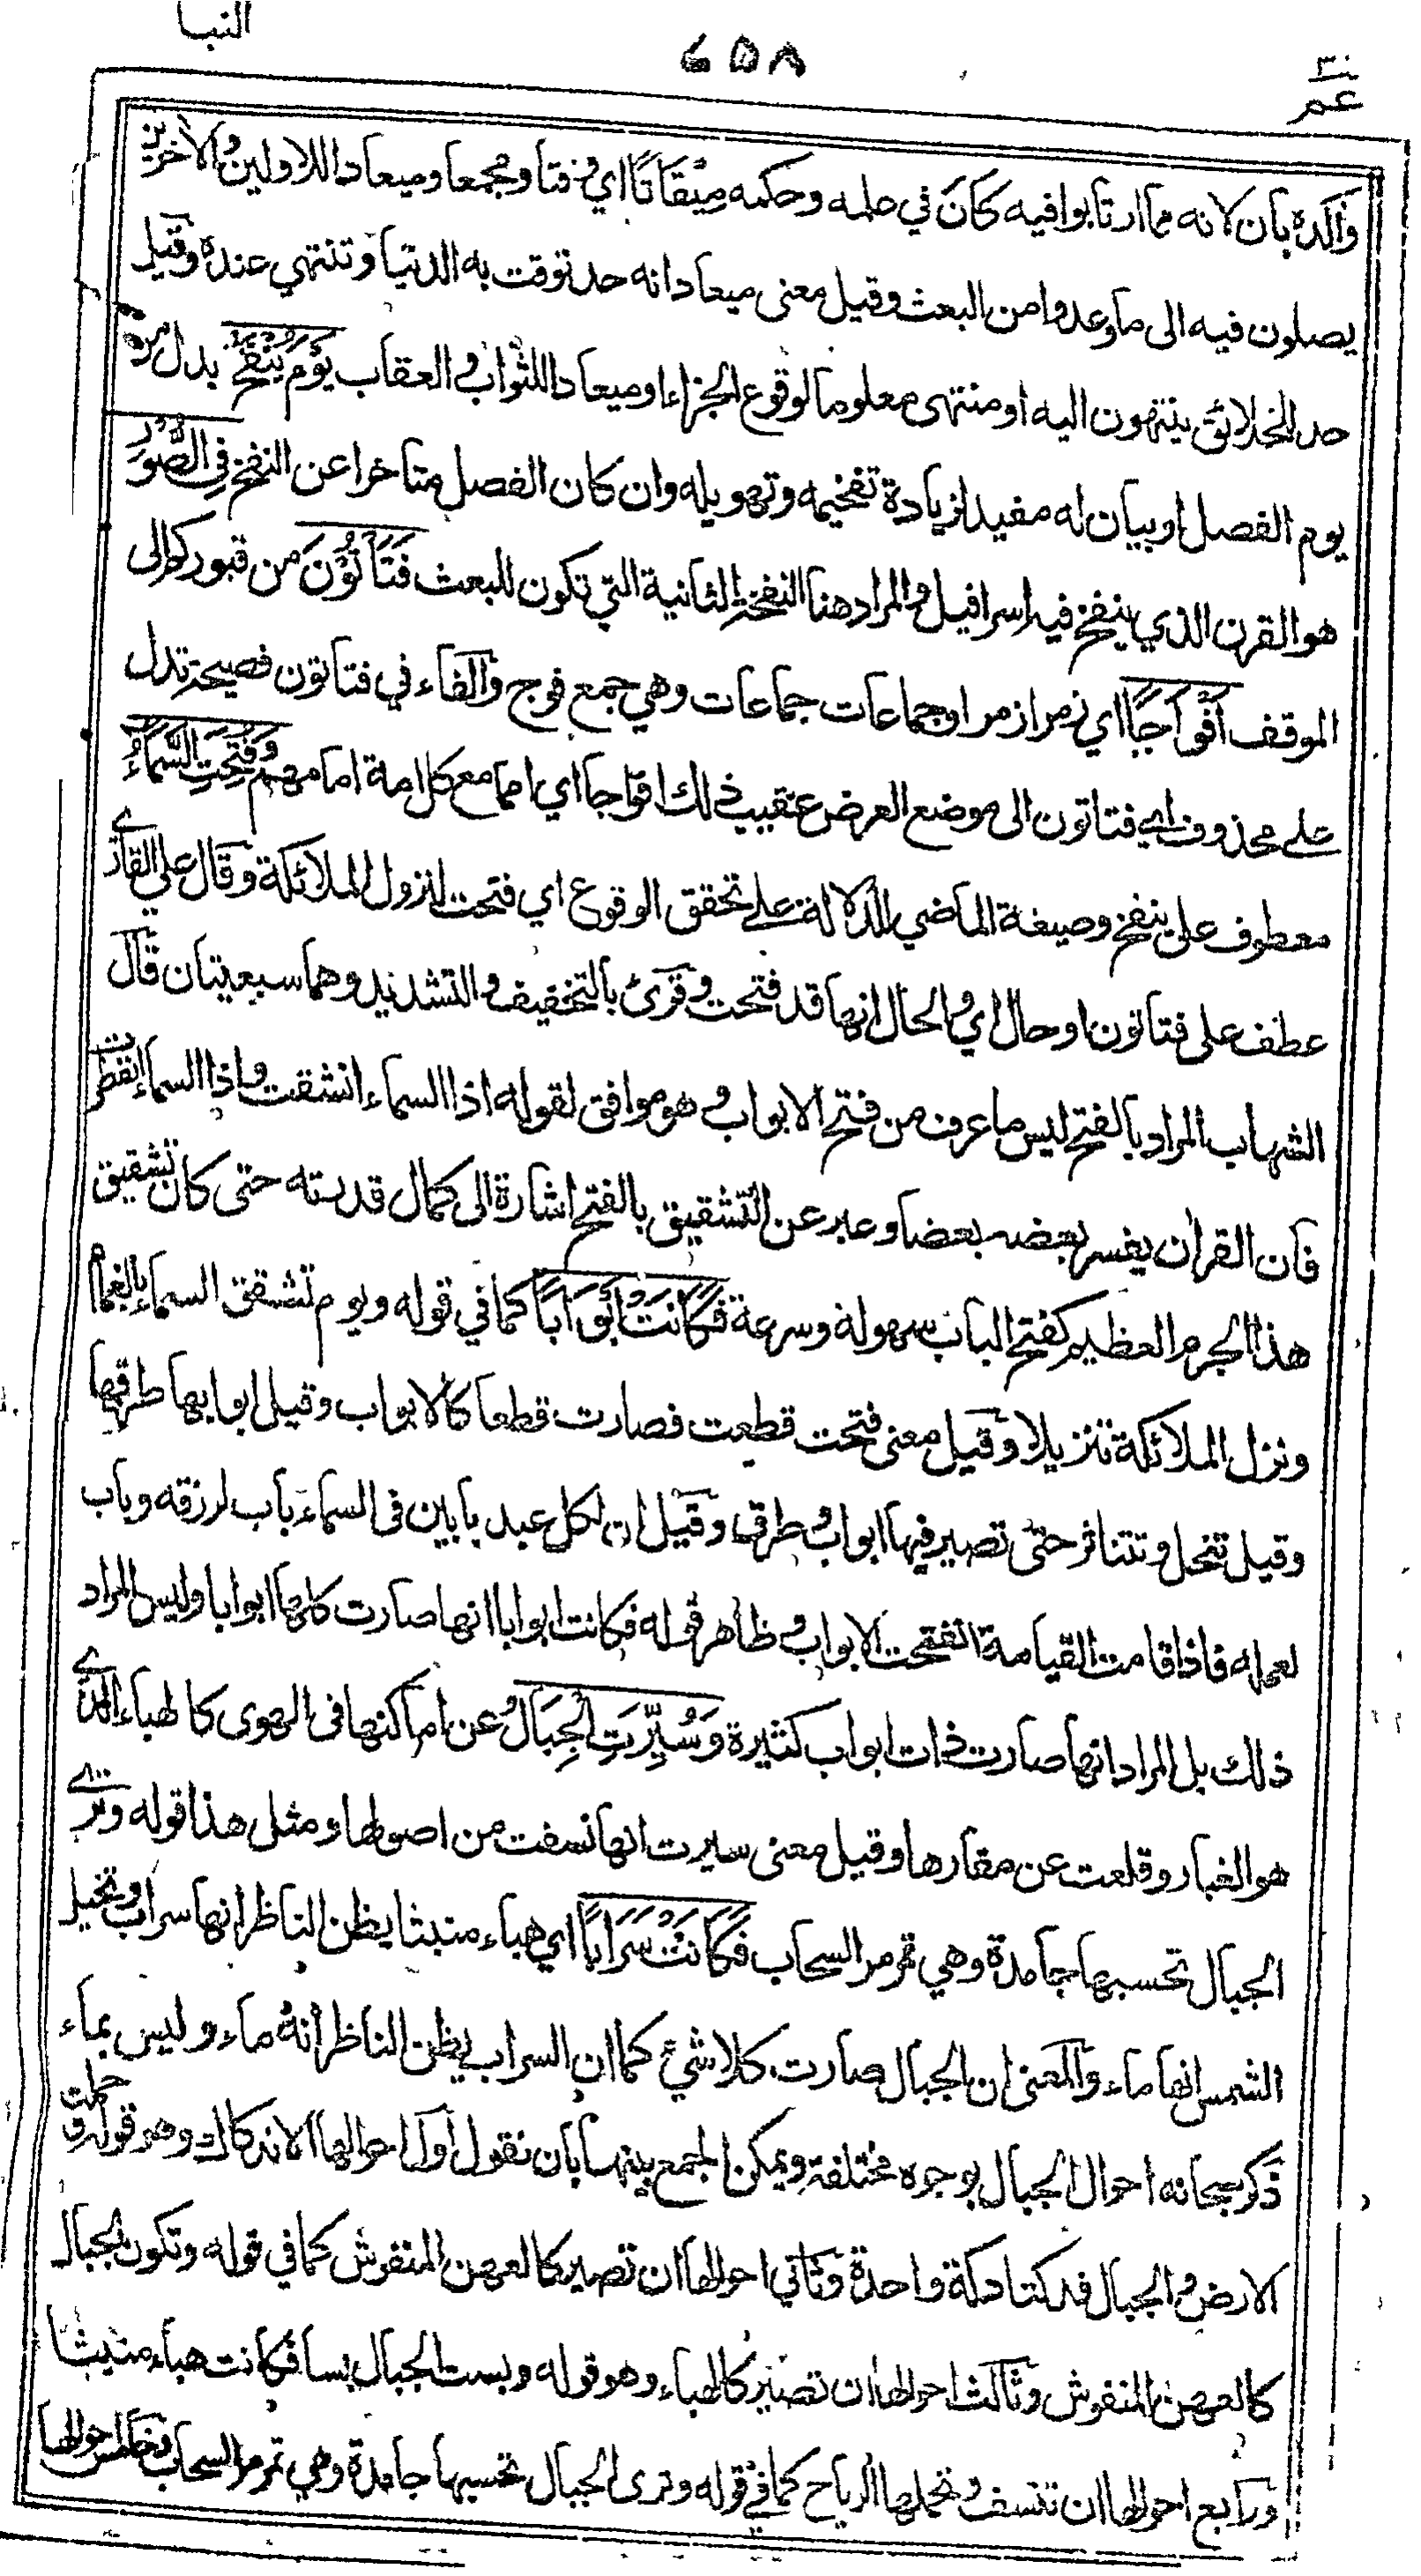 النبا
٤٥٨
عم ٣٠
وأكده بان لانه مما ارتابوا فيه كَانَ في علمه وحكمه مِيْقَاتًا اي وقتا ومجمعا وميعادا للاولين والآخرين
يصلون فيه الى ما وعدوا من البعث وقيل معنى ميعادا انه حد توقت به الدنيا وتنتهي عنده وقيل
حد للخلائق ينتهون اليه او منتهى معلوما لوقوع الجزاء او ميعادا للثواب والعقاب يَوْمَ يُنْفَخُ بدل من
يوم الفصل او بيان له مفيد لزيادة تفخيمه وتهويله وان كان الفصل متاخرا عن النفخ فِي الصُّوْرِ
هو القرن الذي ينفخ فيه اسرافيل والمراد هنا النفخة الثانية التي تكون للبعث فَتَأْتُوْنَ من قبوركم الى
الموقف أَفْوَاجًا اي زمرا زمرا وجماعات جماعات وهي جمع فوج والفاء في فتاتون فصيحة تدل
على محذوف اي فتاتون الى موضع العرض عقيب ذلك افواجا اي امما مع كل امة امامهم وَفُتِحَتِ السَّمَاءُ
معطوف على ينفخ وصيغة الماضي للدلالة على تحقق الوقوع اي فتحت لنزول الملائكة وقال علي القاري
عطف على فتاتون او حال اي والحال انها قد فتحت وقرئ بالتخفيف والتشديد وهما سبعيتان قال
الشهاب المراد بالفتح ليس ما عرف من فتح الابواب وهو موافق لقوله اذا السماء انشقت واذا السماء انفطرت
فان القران يفسر بعضه بعضا وعبر عن التشقيق بالفتح اشارة الى كمال قدرته حتى كان تشقيق
هذا الجرم العظيم كفتح الباب سهولة وسرعة فَكَانَتْ أَبْوَابًا كما في قوله ويوم تشقق السماء بالغمام
ونزل الملائكة تنزيلا وقيل معنى فتحت قطعت فصارت قطعا كالابواب وقيل ابوابها طرقها
وقيل تنحل وتتناثر حتى تصير فيها ابواب وطرق وقيل ان لكل عبد بابين فى السماء باب لرزقه وباب
لعمله فاذا قامت القيامة انفتحت الابواب وظاهر قوله فكانت ابوابا انها صارت كلها ابوابا وليس المراد
ذلك بل المراد انها صارت ذات ابواب كثيرة وَسُيِّرَتِ الْجِبَالُ عن اماكنها فى الهوى كالهباء الذي
هو الغبار وقلعت عن مقارها وقيل معنى سيرت انها نسفت من اصولها ومثل هذا قوله وترى
الجبال تحسبها جامدة وهي تمر مر السحاب فَكَانَتْ سَرَابًا اي هباء منبثا يظن الناظر انها سراب وتخيل
الشمس انها ماء والمعنى ان الجبال صارت كلا شئ كما ان السراب يظن الناظر أنه ماء وليس بماء
ذكر سبحانه احوال الجبال بوجوه مختلفة ويمكن الجمع بينها بان نقول اول احوالها الاندكاك وهو قوله وحملت
الارض والجبال فدكتا دكة واحدة وثاني احوالها ان تصير كالعهن المنفوش كما في قوله وتكون الجبال
كالعهن المنفوش وثالث احوالها ان تصير كالهباء وهو قوله وبست الجبال بسا فكانت هباء منبثا
ورابع احوالها ان تنسف وتحملها الرياح كما في قوله وترى الجبال تحسبها جامدة وهي تمر مر السحاب وخامس احوالها